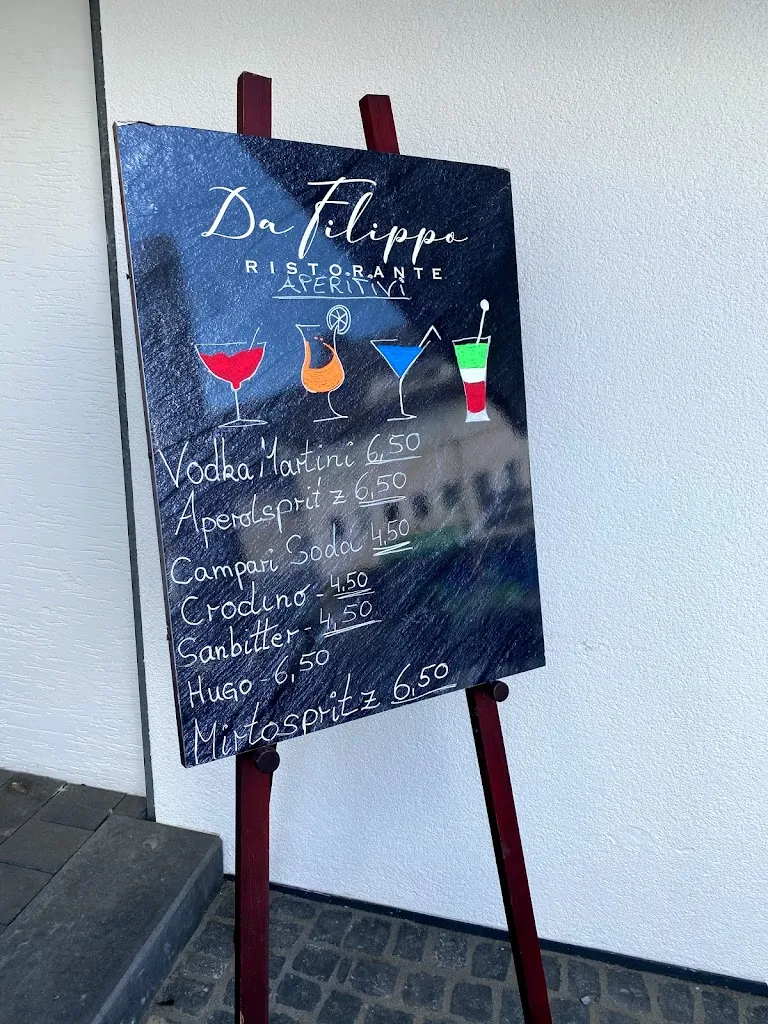 Da Filippo
RISTORANTE
APERITIVI
Vodka Martini 6,50
Aperolsprit'z 6,50
Campari Soda 4,50
Crodino - 4.50
Sanbitter - 4,50
Hugo - 6,50
Mirtospritz 6,50